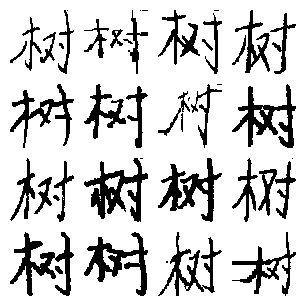 树树树树
树树树树
树树树树
树树树树